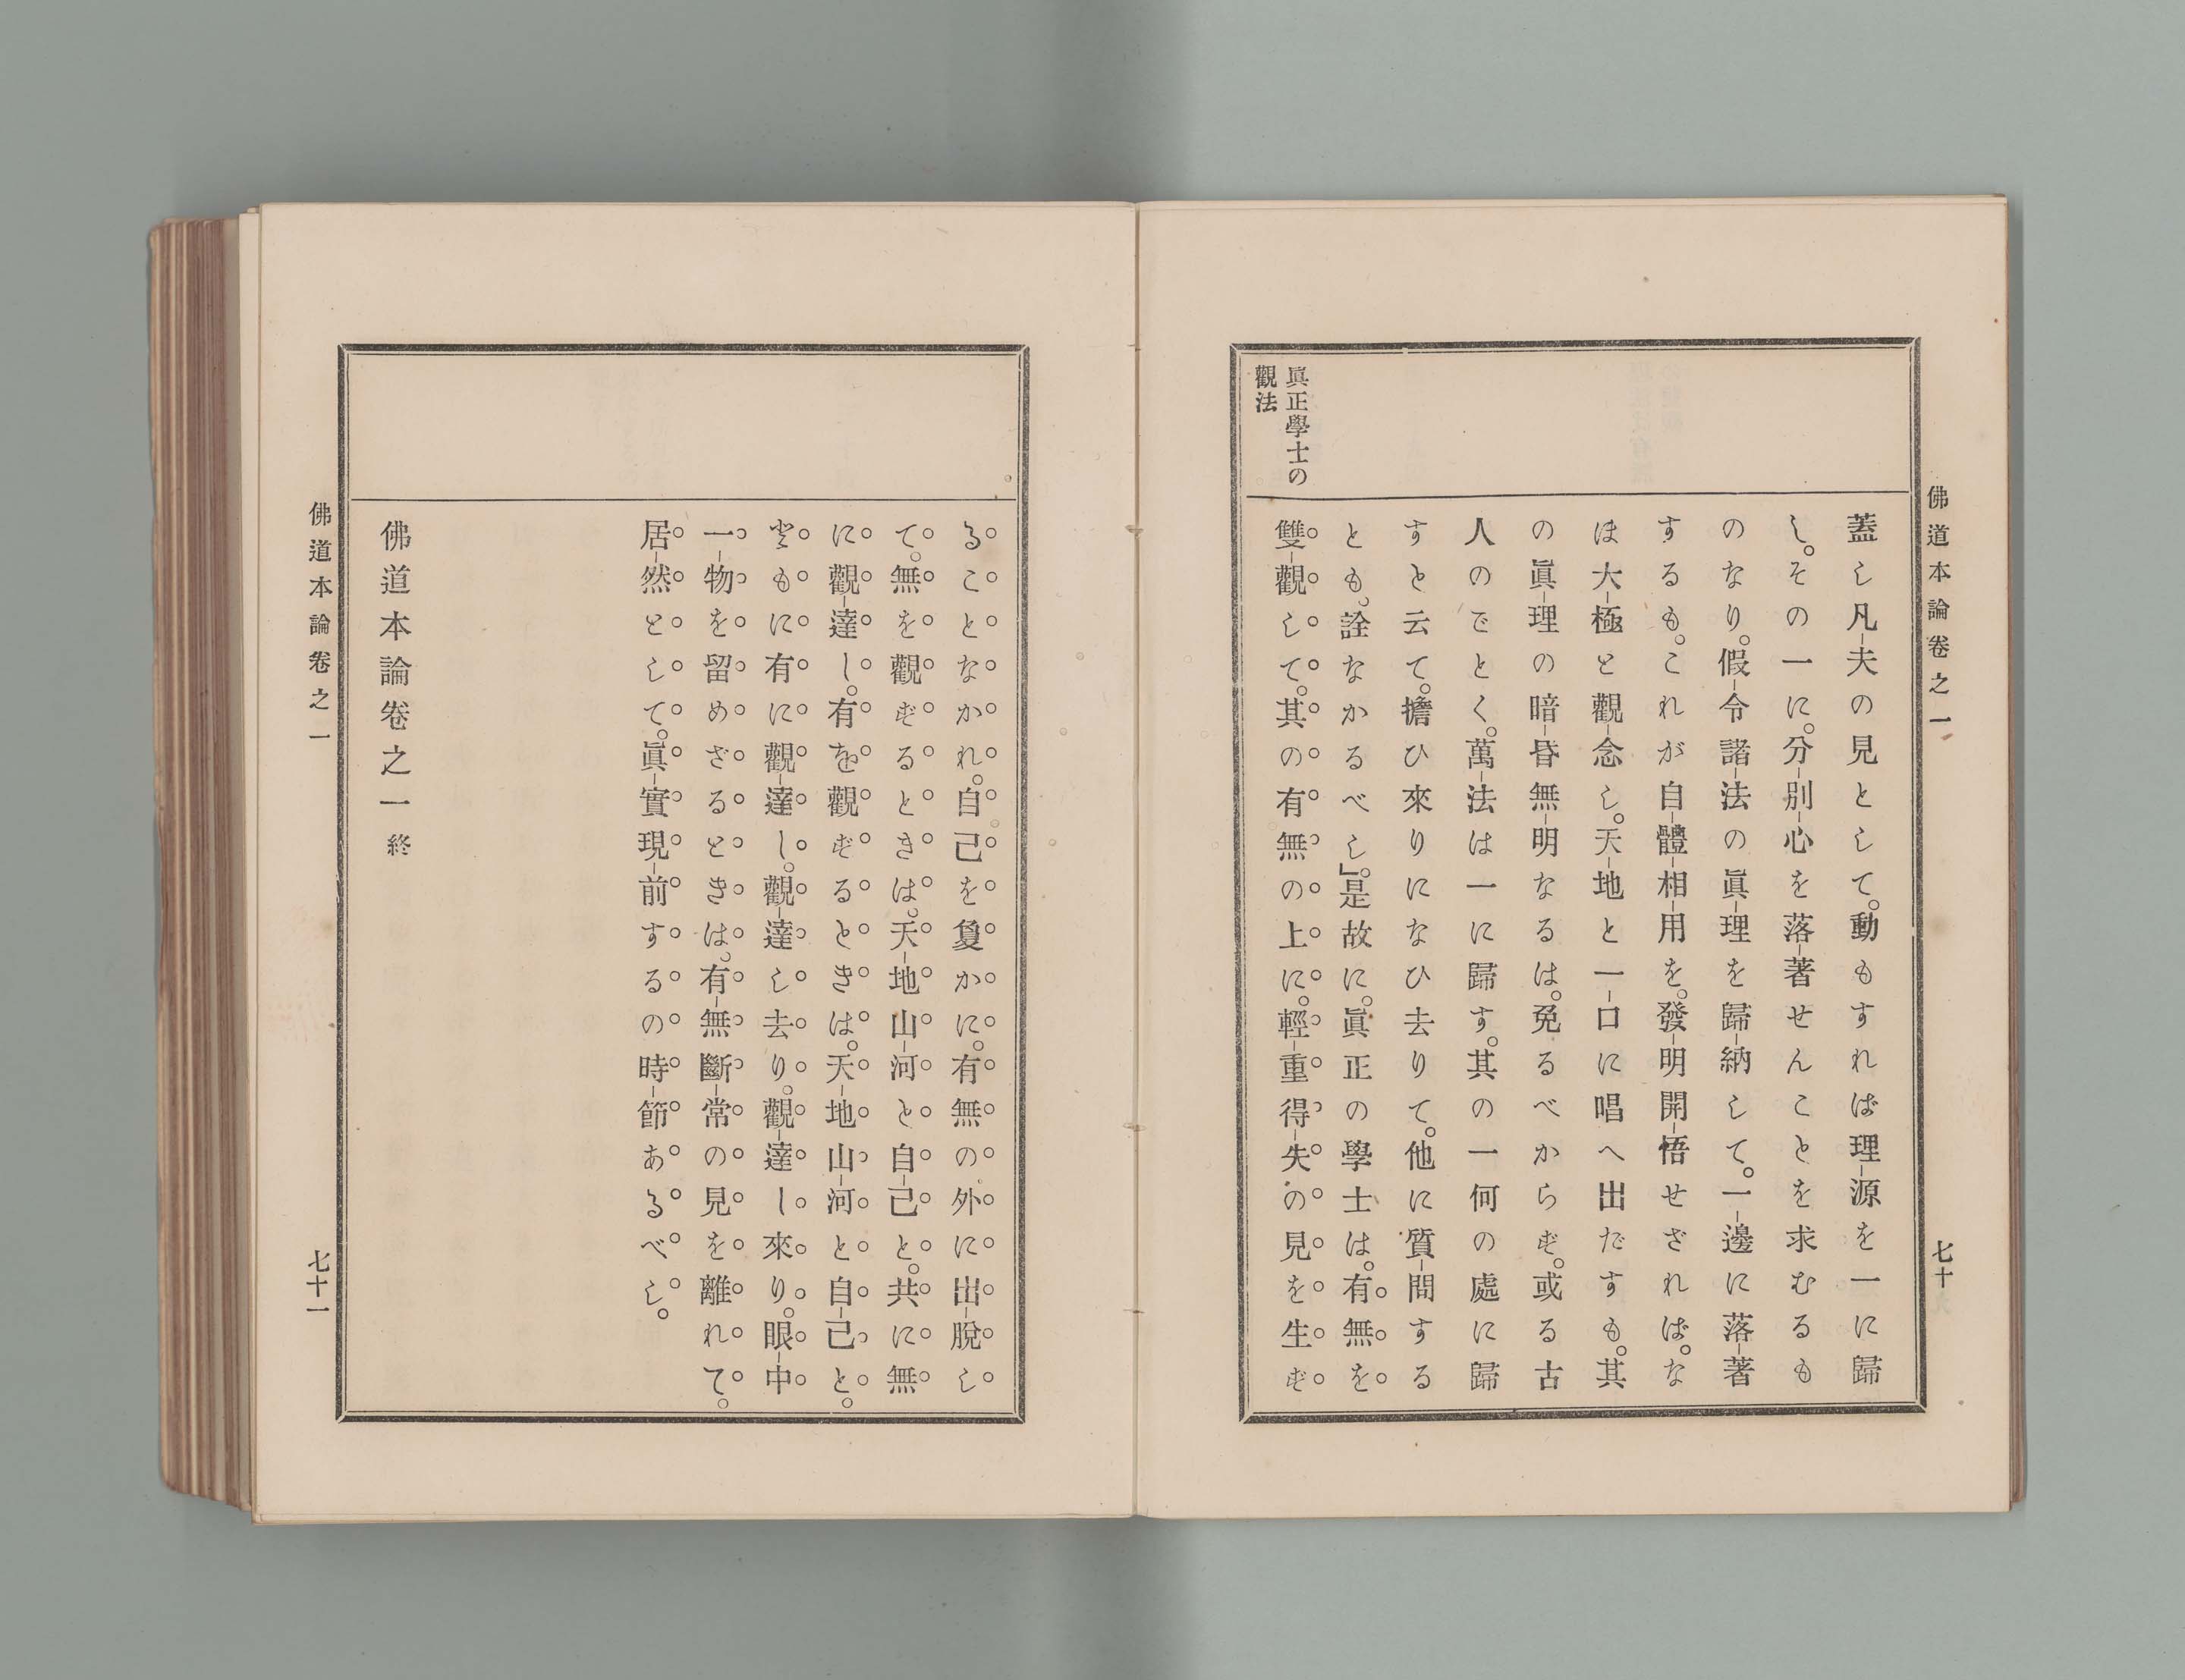 佛道本論卷之一
七十
眞正學士の
觀法
蓋し凡夫の見として。動もすれば理源を一に歸
し。その一に。分別心を落著せんことを求むるも
のなり。假令諸法の眞理を歸納して。一邊に落著
するも。これが自體相用を。發明開悟せざれば。な
ほ大極と觀念し。天地と一口に唱へ出だすも。其
の眞理の暗昏無明なるは。免るべからず。或る古
人のごとく。萬法は一に歸す。其の一何の處に歸
すと云て。擔ひ來りになひ去りて。他に質問する
とも。詮なかるべし」。是故に。眞正の學士は。有無を。
雙觀して。其の有無の上に。輕重得失の見を生ず
ることなかれ。自己を敻かに。有無の外に出脫し
て。無を觀ずるときは。天地山河と自己と。共に無
に觀達し。有を觀ずるときは。天地山河と自己と。
ともに有に觀達し。觀達し去り。觀達し來り。眼中
一物を留めざるときは。有無斷常の見を離れて。
居然として。眞實現前するの時節あるべし。
佛道本論卷之一終
佛道本論卷之一
七十一